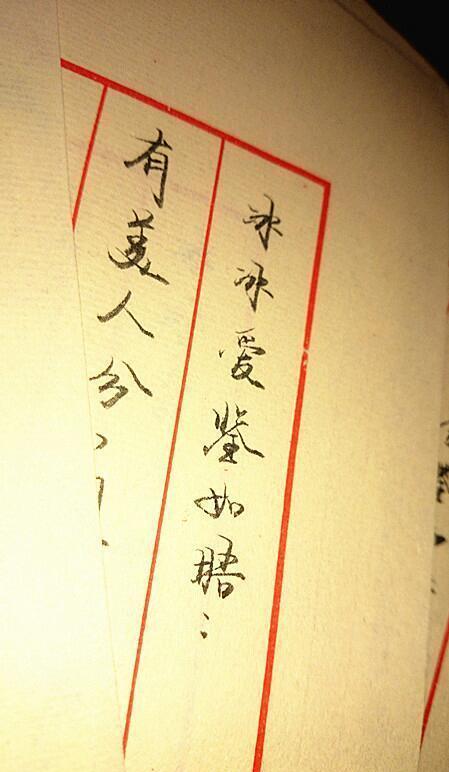 冰冰爱鉴如晤：
有美人兮